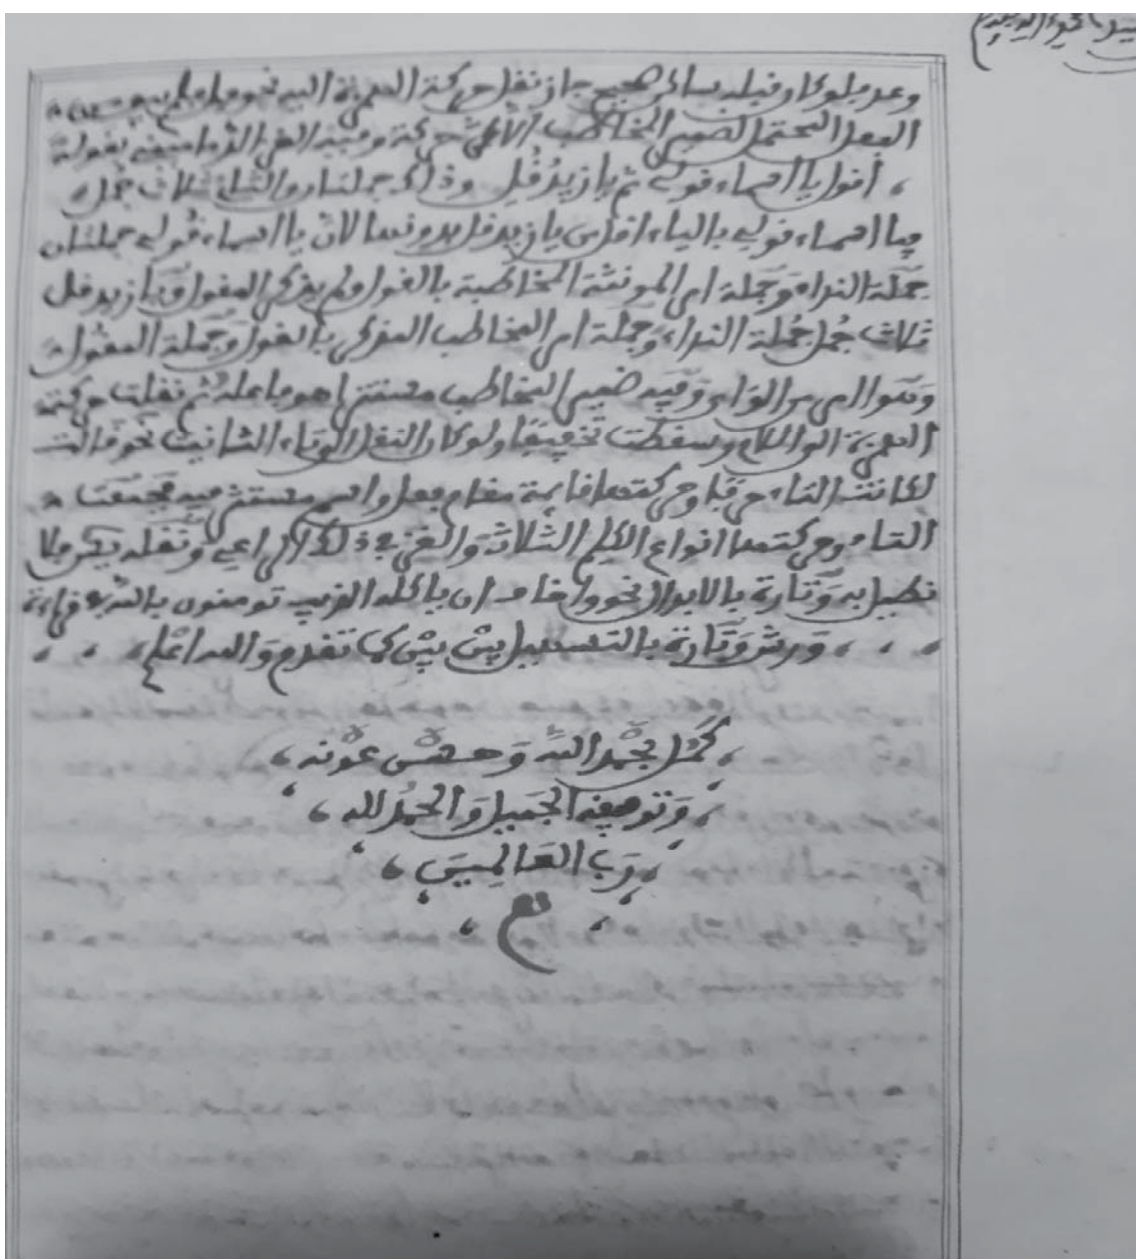 قبله ساكن صحيح جاز نقل حركة الهمزة اليه نحو
الفعل المحتمل لضمير المخاطب الا حركة بقوله
، اقول يا اسماء قولي ثم يا زيد قل وذاك جملتان والثاني ثلاث جمل
فيا اسماء قولي بالياء يا زيد قل لان يا اسماء قولي جملتان
جملة النداء وجملة امر المونثة المخاطبة بالقول ولم يذكر المقول ويا زيد قل
ثلاث جمل جملة النداء وجملة امر المخاطب المذكر بالقول وجملة المقول
وهو امر من الواي وفيه ضمير المخاطب مستتر هو فاعله ثم نقلت حركة
الهمزة الى اللام وسقطت تخفيفا ولو كان النقل الى تاء التانيث نحو قالت
لكانت التاء حرفا وحركتها قايمة مقام فعل واسم مستتر فيه فجمعت
التاء وحركتها انواع الكلم الثلاثة والغز في ذلك الراعي ونقله يكثر فلا
نطيل به وتارة بالابدال نحو تومنون بالله في قراءة
، ، ، ورش وتارة بالتسهيل بين بين كما تقدم والله اعلم ، ، ،
، كَمُل بحمد الله وَحسن عَوْنه ،
، وَتوفيقه الجَميل وَالحمْدُ لله ،
، رَب العَالمِينَ ،